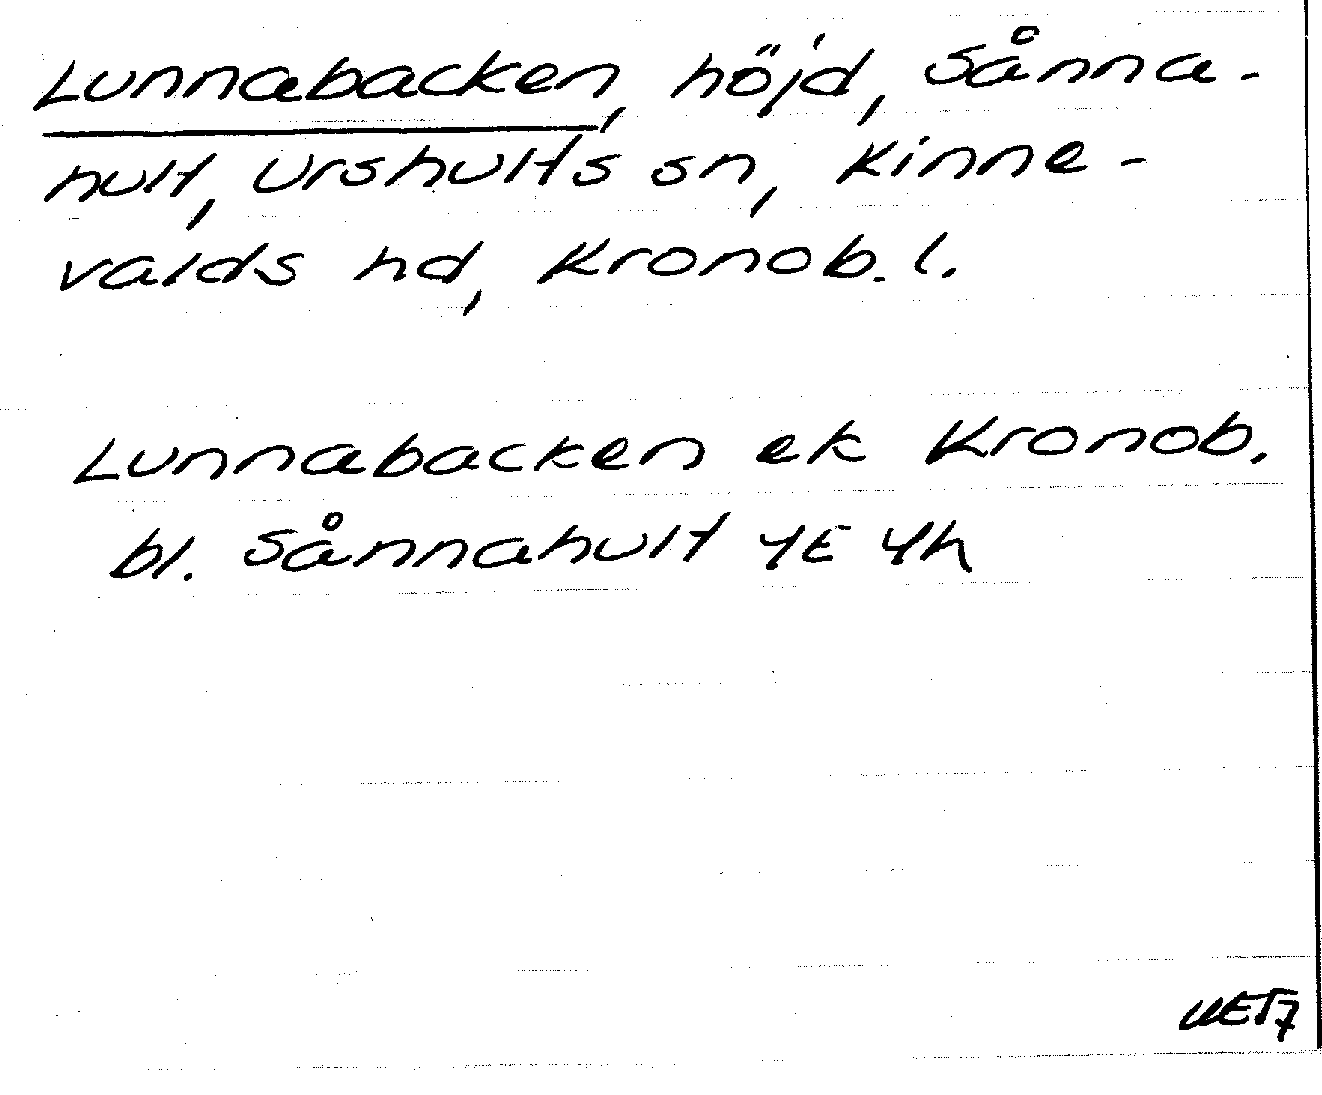 Lunnabacken, höjd, Sånna-
hult, Urshults sn, Kinne-
valds hd, Kronob. l.
Lunnabacken ek Kronob.
bl. Sånnahult 4E 4h